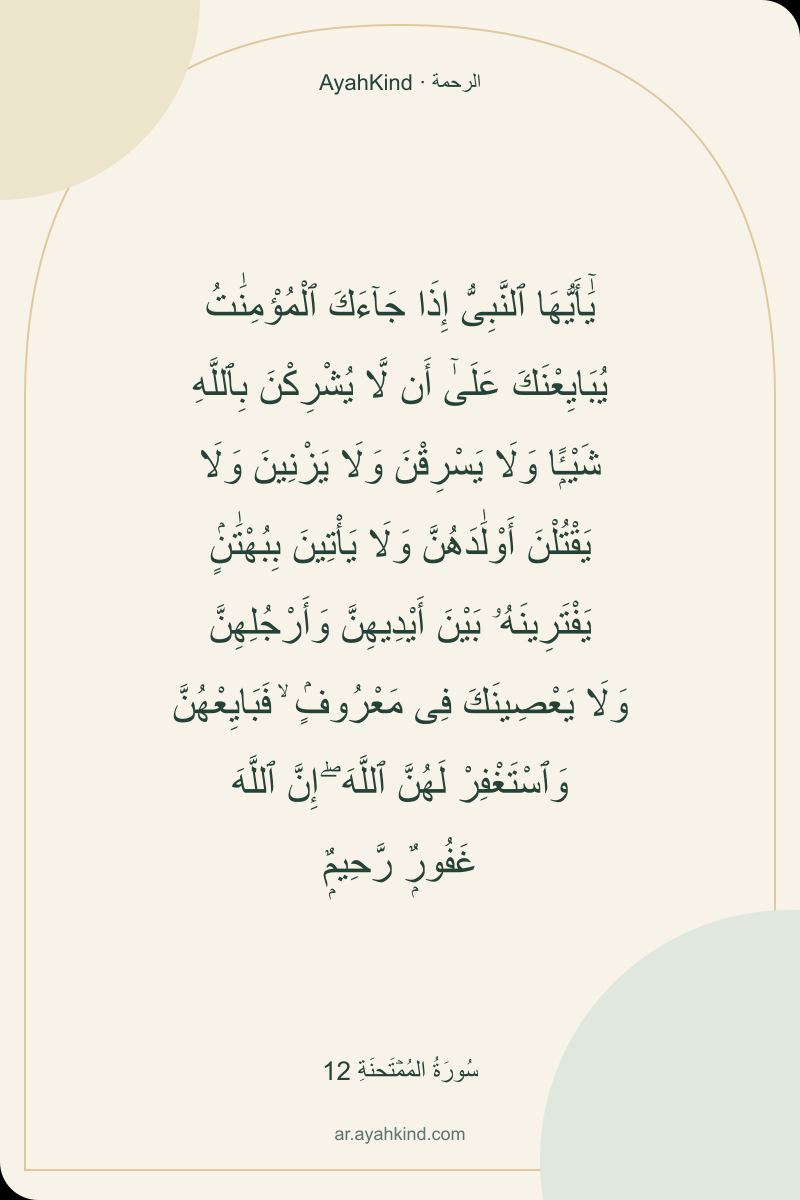 AyahKind · الرحمة
يَٰٓأَيُّهَا ٱلنَّبِىُّ إِذَا جَآءَكَ ٱلْمُؤْمِنَٰتُ
يُبَايِعْنَكَ عَلَىٰٓ أَن لَّا يُشْرِكْنَ بِٱللَّهِ
شَيْـًٔا وَلَا يَسْرِقْنَ وَلَا يَزْنِينَ وَلَا
يَقْتُلْنَ أَوْلَٰدَهُنَّ وَلَا يَأْتِينَ بِبُهْتَٰنٍ
يَفْتَرِينَهُۥ بَيْنَ أَيْدِيهِنَّ وَأَرْجُلِهِنَّ
وَلَا يَعْصِينَكَ فِى مَعْرُوفٍ ۙ فَبَايِعْهُنَّ
وَٱسْتَغْفِرْ لَهُنَّ ٱللَّهَ ۖ إِنَّ ٱللَّهَ
غَفُورٌ رَّحِيمٌ
سُورَةُ المُمۡتَحنَةِ 12
ar.ayahkind.com